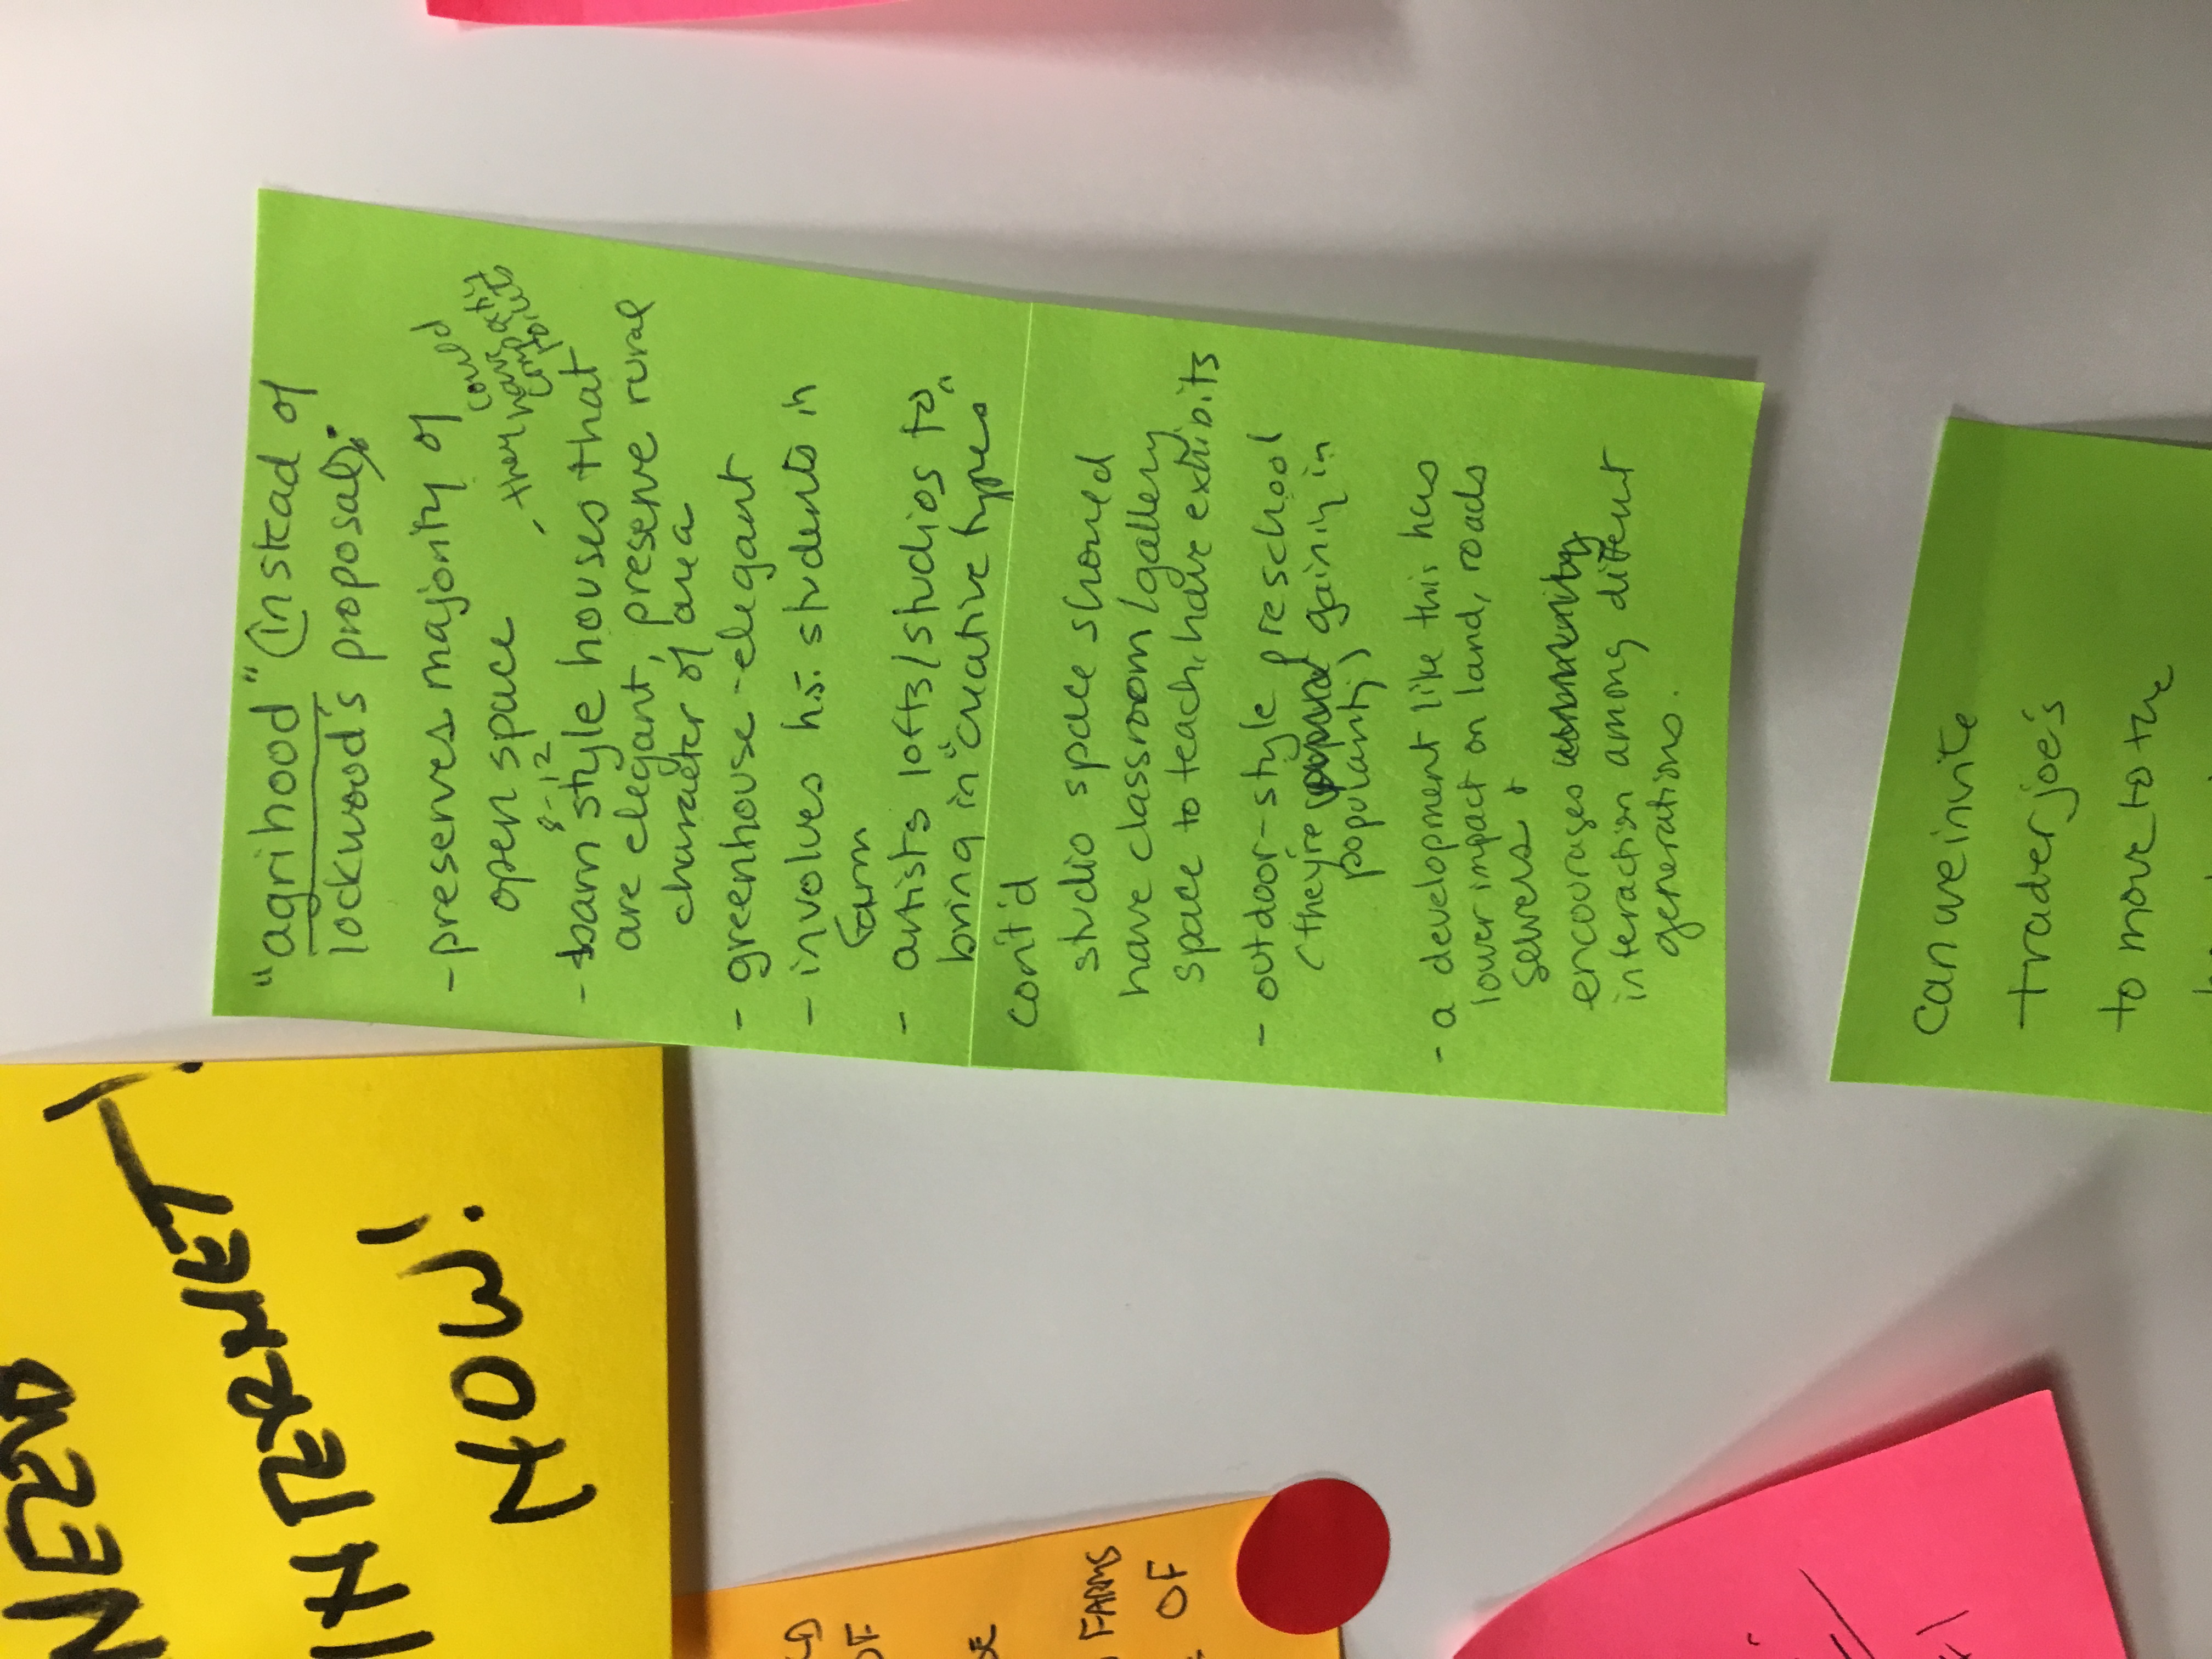 "agrihood" (instead of
lockwood's proposal):
- preserves majority of
open space
- they could
have
8-12
- barn style houses that
are elegant, preserve rural
character of area
- greenhouse - elegant
- involves h.s. students in
farm
- artists lofts/studios to
bring in "creative types"
cont'd
studio space should
have classroom/gallery
space to teach, have exhibits
- outdoor-style preschool
(they're gaining in
popularity)
- a development like this has
lower impact on land, roads
sewers +
encourages
interaction among different
generations.
can we invite
trader joe's
to move to the
NEED
INTERNET
NOW!
FARMS
OF